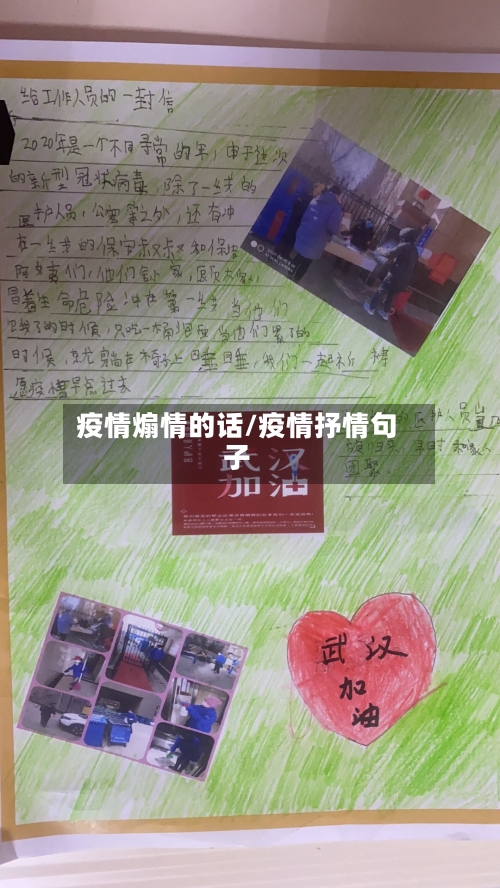 给工作人员的一封信
2020年是一个不同寻常的年,由于这次
的新型冠状病毒,除了一线的
医护人员,公安警之外,还有冲
在一线的保安叔叔和保洁
阿姨们,他们
冒着生命危险冲在第一线当他们
饿了的时候,只吃一桶泡面当他们累了的
时候,就躺在椅子上睡睡,我们一起祈祷
愿疫情早点过去
医护人员
早日和家人
团聚
疫情煽情的话/疫情抒情句
子
武汉
加油
武汉
加
油